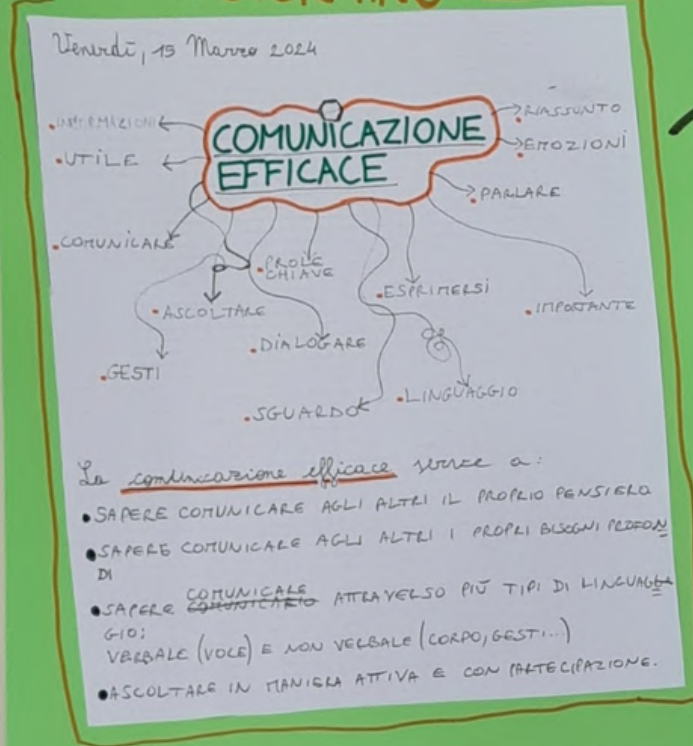 Venerdì, 15 Marzo 2024
COMUNICAZIONE
EFFICACE
•INFORMAZIONI
•UTILE
•COMUNICARE
•RIASSUNTO
•EMOZIONI
•PARLARE
•PROLE
CHIAVE
•ESPRIMERSI
•IMPORTANTE
•ASCOLTARE
•DIALOGARE
•GESTI
•SGUARDO
•LINGUAGGIO
La comunicazione efficace serve a:
•SAPERE COMUNICARE AGLI ALTRI IL PROPRIO PENSIERO
•SAPERE COMUNICARE AGLI ALTRI I PROPRI BISOGNI PROFON
DI
•SAPERE COMUNICARE ATTRAVERSO PIÙ TIPI DI LINGUAG
GIO:
VERBALE (VOCE) E NON VERBALE (CORPO, GESTI...)
•ASCOLTARE IN MANIERA ATTIVA E CON PARTECIPAZIONE.